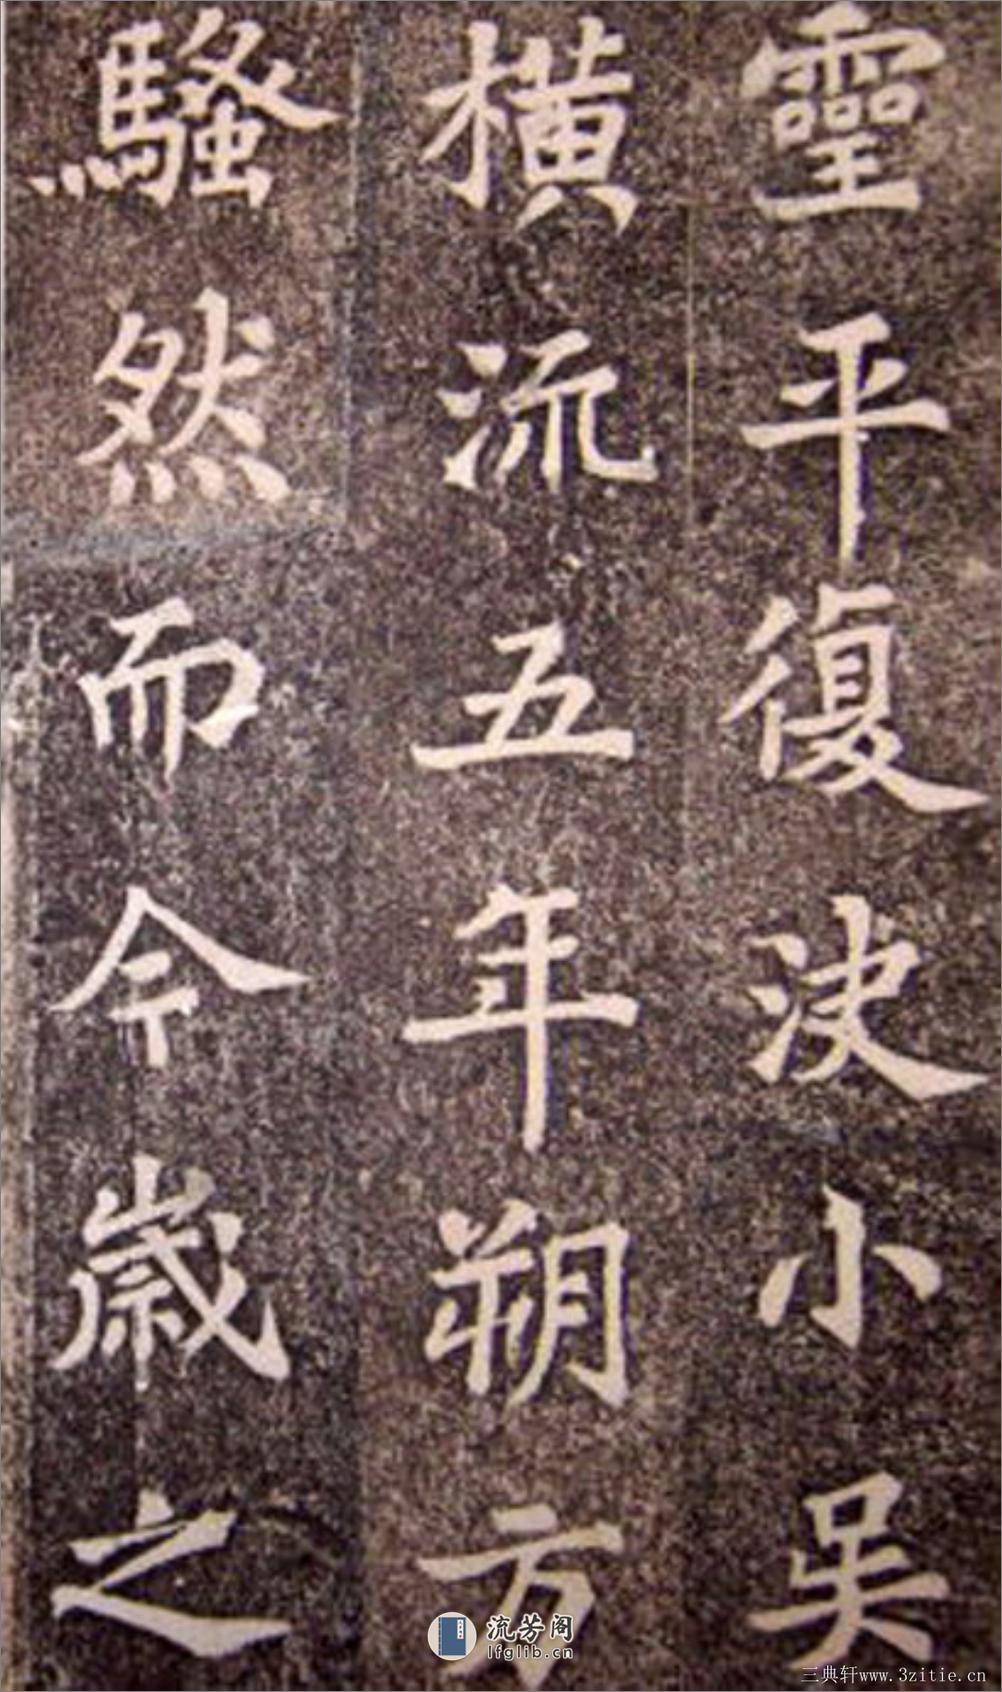 靈平復決小吳
橫流五年朔方
騷然而今歲之
流芳阁
lfglib.cn
三典轩www.3zitie.cn